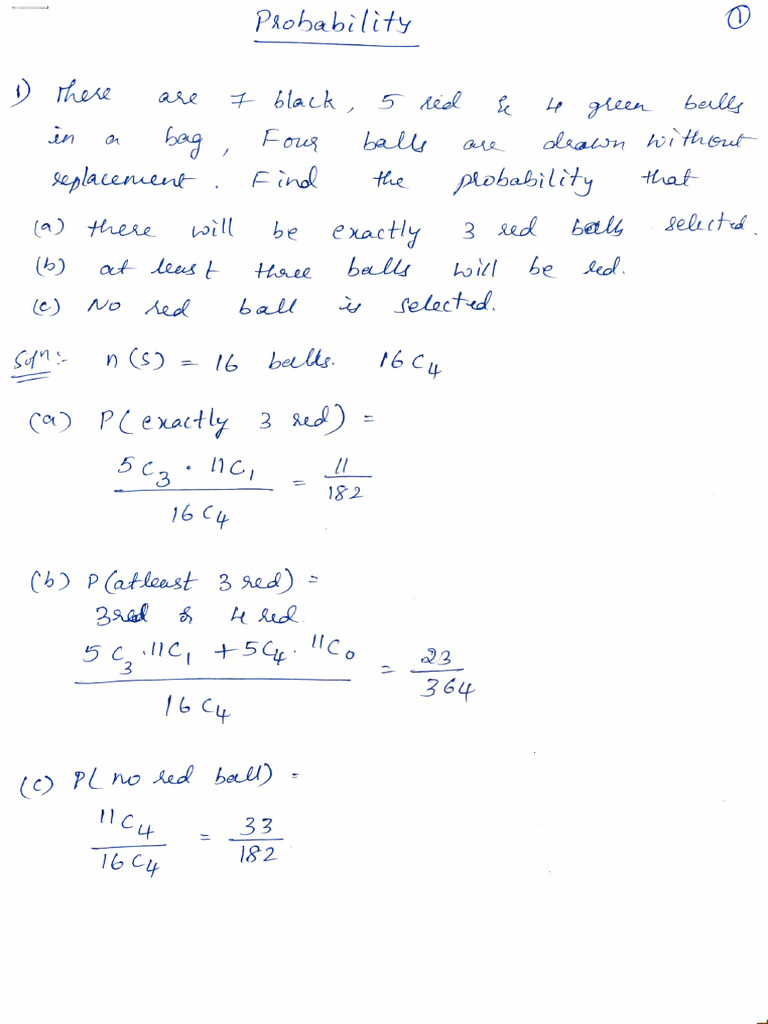 Probability
①
1) There are 7 black, 5 red & 4 green balls
in a bag, Four balls are drawn without
replacement. Find the probability that
(a) there will be exactly 3 red balls selected.
(b) at least three balls will be red.
(c) No red ball is selected.
Soln:- n(s) = 16 balls. 16C₄
(a) P(exactly 3 red) =
5C₃ · 11C₁ / 16C₄ = 11/182
(b) P(atleast 3 red) =
3red & 4 red.
5C₃ · 11C₁ + 5C₄ · 11C₀ / 16C₄ = 23/364
(c) P(no red ball) =
11C₄ / 16C₄ = 33/182